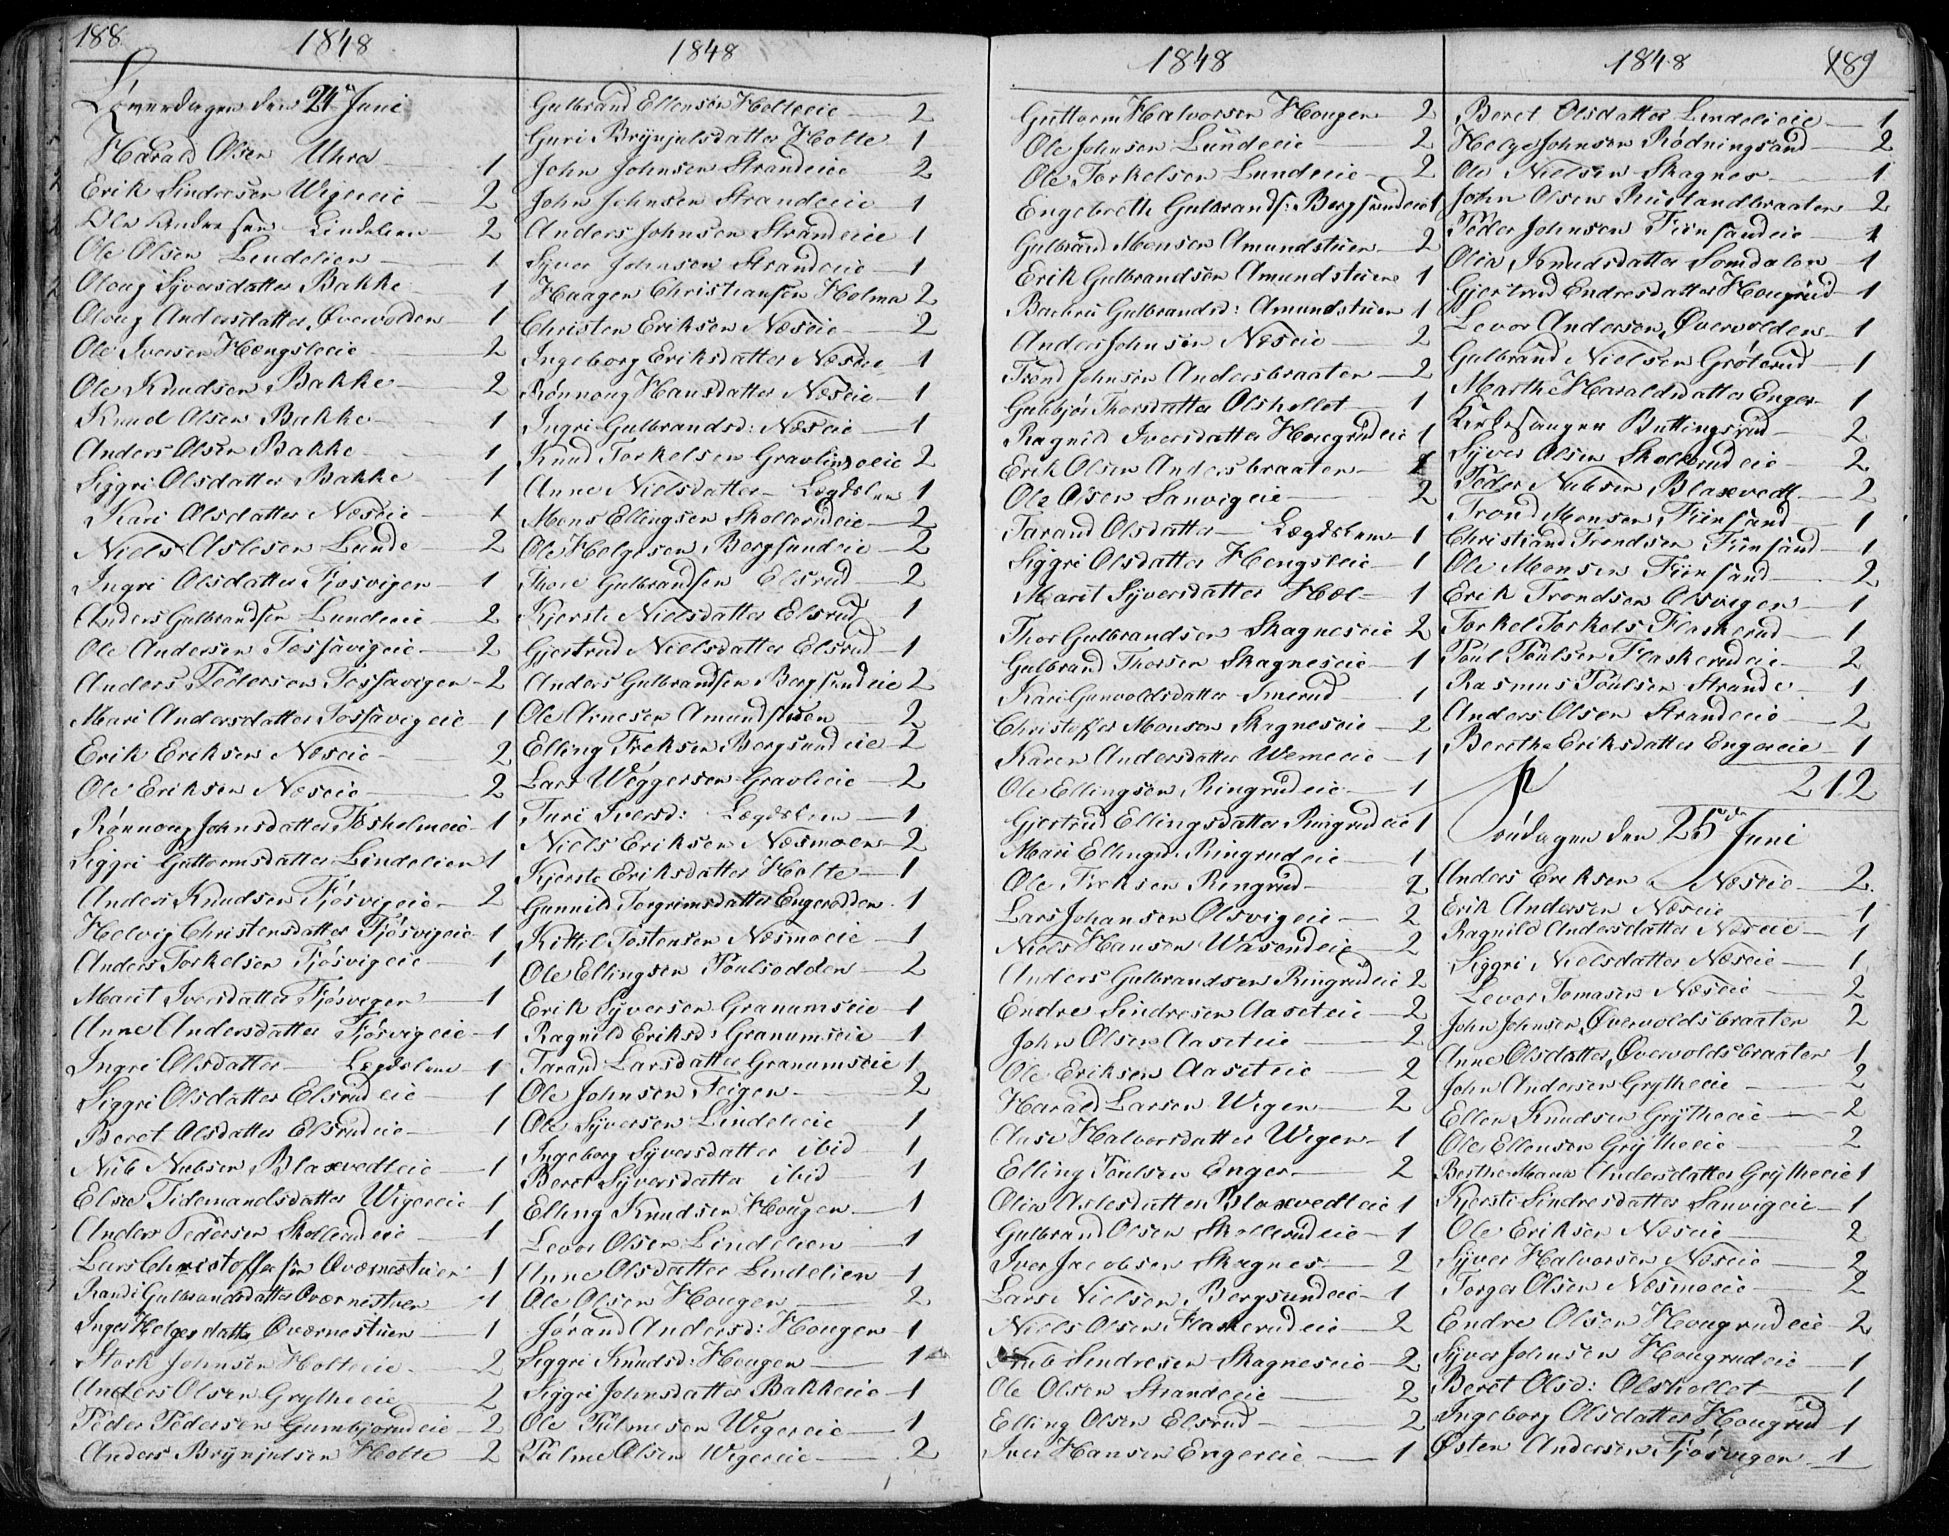 188
1848
Løverdagen den 24 Juni
Harald Olsen Uhra 1
Erik Sindresen Wigereie 2
Ole Andresen Lindelien 2
Ole Olsen Lindelien 1
Oloug Syversdatter Bakke 1
Oloug Andersdatter Øvervolden 1
Ole Iversen Hængsleeie 2
Ole Knudsen Bakke 2
Knud Olsen Bakke 1
Anders Olsen Bakke 1
Siggri Olsdatter Bakke 1
Kari Olsdatter Næseie 1
Niels Aslesen Lunde 2
Ingri Olsdatter Fjøsvigen 1
Anders Gulbrandsen Lundeeie 2
Ole Andersen Fossavigeie 2
Anders Pedersen Fossavigen 2
Mari Andersdatter Fossavigeie 1
Erik Eriksen Næseie 2
Ole Eriksen Næseie 2
Rønnoug Johnsdatter Fosholmeie 1
Siggri Guttormsdatter Lindelien 1
Anders Knudsen Fjøsvigeie 2
Helvig Christensdatter Fjøsvigeie 1
Anders Torkelsen Fjøsvigeie 1
Marit Iversdatter Fjøsvigen 1
Anne Andersdatter Fjøsvigeie 1
Ingri Olsdatter Lægdslem 1
Siggri Olsdatter Elsrudeie 1
Beret Olsdatter Elsrudeie 1
Nub Nubsen Blaxvedteie 1
Elsie Tidemandsdatter Wigereie 1
Anders Pedersen Skollerudeie 1
Lars Christoffersen Oværnestuen 1
Randi Gulbrandsdatter Oværnestuen 1
Inger Helgesdatter Øværnestuen 1
Stork Johnsen Holteeie 2
Anders Olsen Grytheeie 2
Peder Pedersen Gumbjørudeie 2
Anders Brynjulsen Holte 2
1848
Gulbrand Ellensøn Holteeie 2
Guri Brynjulsdatter Holte 1
John Johnsen Strandeie 2
John Johnsen Strandeeie 1
Anders Johnsen Strandeeie 1
Syver Johnsen Strandeeie 1
Haagen Christiansen Holma 2
Christen Eriksen Næseie 2
Ingeborg Eriksdatter Næseie 1
Rønnoug Hansdatter Næseie 1
Ingri Gulbrandsd: Næseie 1
Knud Torkelsen Gravlimoeie 2
Anne Nielsdatter Lægdslem 1
Mons Ellingsen Skollerudeie 2
Ole Helgesen Bergsundeie 2
Thore Gulbrandsen Elsrud 2
Kjersti Nielsdatter Elsrud 1
Gjertrud Nielsdatter Elsrud 1
Anders Gulbrandsen Bergsundeie 2
Ole Arnesen Amundstuen 2
Elling Ericksen Bergsundeie 2
Lars Wiggersen Gravlieie 2
Turi Iversd: Lægdslem 1
Niels Eriksen Næsmoen 2
Kjersti Eriksdatter Holte 1
Gunnild Torgrimsdatter Engerodden 1
Kittil Tostensen Næsmoeie 1
Ole Ellingsen Poulsodden 2
Erik Syversen Granumseie 1
Ragnild Eriksd: Granumseie 1
Tarand Larsdatter Granumseie 1
Ole Johnsen Teigen 2
Ole Syversen Lindeleeie 1
Ingeborg Syversdatter ibid 1
Beret Syversdatter ibid 1
Elling Knudsen Hougen 1
Levor Olsen Lindelien 1
Anne Olsdatter Lindelien 1
Ole Olsen Hougen 2
Jørand Andersd: Hougen 1
Siggri Knudsd: Hougen 1
Siggri Johnsdatter Bakkeeie 1
Ole Palmesen Wigereie 1
Palme Olsen Wigereie 2
1848
Guttorm Halvorsen Hougen 2
Ole Johnsen Lundeeie 2
Ole Torkelsen Lundeeie 2
Engebreth Gulbrands: Bergsundeie 1
Gulbrand Monsen Amundstuen 2
Erik Gulbrandsen Amundstuen 1
Barbru Gulbrandsd: Amundstuen 1
Anders Johnsen Næseie 2
Trond Johnsen Andersbraaten 2
Gubbjør Thorsdatter Olshollet 1
Ragnild Iversdatter Hougrudeie 1
Erik Olsen Andersbraaten 1
Ole Olsen Sanvigeie 2
Tarand Olsdatter Lægdslem 1
Siggri Olsdatter Hengsleie 1
Marit Syversdatter Hæl 1
Thor Gulbrandsen Skagneseie 2
Gulbrand Thorsen Skagneseie 1
Kari Gunvoldsdatter Smerud 1
Christoffer Monsen Skagneseie 2
Karen Andersdatter Wemeeie 1
Ole Ellingsen Ringrudeie 1
Gjertrud Ellingsdatter Ringrudeie 1
Mari Ellingsd: Ringrudeie 1
Ole Ericksen Ringrud 2
Lars Johansen Olsvigeie 2
Niels Hansen Wasendeie 2
Anders Gulbrandsen Ringrudeie 2
Endre Sindresen Aaseteie 2
John Olsen Aaseteie 2
Ole Eriksen Aaseteie 2
Harald Larsen Wigen 2
Aase Halvorsdatter Wigen 1
Elling Poulsen Enger 2
Olia Aslesdatter Blaxvedteie 1
Gulbrand Olsen Skollerudeie 1
Iver Jacobsen Skagnes 2
Lars Nielsen Bergsundeie 1
Niels Olsen Flaskerudeie 2
Nub Sindresen Skagneseie 2
Ole Olsen Strandeeie 2
Elling Olsen Elsrud 2
Iver Hansen Engereie 1
1848
189
Beret Olsdatter Lindelieeie 1
Helge Johnsen Rødningsand 2
Ole Nielsen Skagnes 1
John Olsen Ruslandbraaten 2
Peder Johnsen Fiinsandeie 1
Olia Knudsdatter Somdalen 1
Gjertrud Endresdatter Hougrud 1
Levor Andersen Øvervolden 1
Gulbrand Nielsen Grøterud 1
Marthe Haraldsdatter Enger 1
Kirkesangen Buttingsrud 2
Syver Olsen Skollerudeie 2
Peder Nubsen Blaxvedt 2
Trond Monsen Fiinsand 1
Christian Trondsen Fiinsand 1
Ole Monsen Fiinsand 2
Erik Trondsen Olsvigen 1
Torkel Torkels Flaskerud 1
Poul Poulsen Flaskerudeie 2
Rasmus Poulsen Strande 1
Anders Olsen Strandeeie 2
Berethe Eriksdatter Engereie 1
212
Søndagen den 25de Juni
Anders Ericksen Næseie 2
Erik Andersen Næseie 1
Ragnild Andersdatter Næseie 1
Siggri Nielsdatter Næseie 1
Levor Tomasen Næseie 2
John Johnsen Øvervoldsbraaten 2
Anne Olsdatter Øvervoldsbraaten 1
John Andersen Grytheeie 2
Ellen Knudsen Grytheeie 2
Ole Ellensen Grytheeie 2
Berthe Maria Andersdatter Grytheeie 1
Kjersti Sindresdatter Sanvigeie 1
Ole Eriksen Næseie 2
Syver Halvorsen Næseie 2
Torger Olsen Næsmoeie 2
Endre Olsen Hougrudeie 2
Syver Johnsen Hougrudeie 1
Beret Olsd: Olshollet 1
Ingeborg Olsdatter Hougrud 1
Østen Andersen Fjøsvigen 1